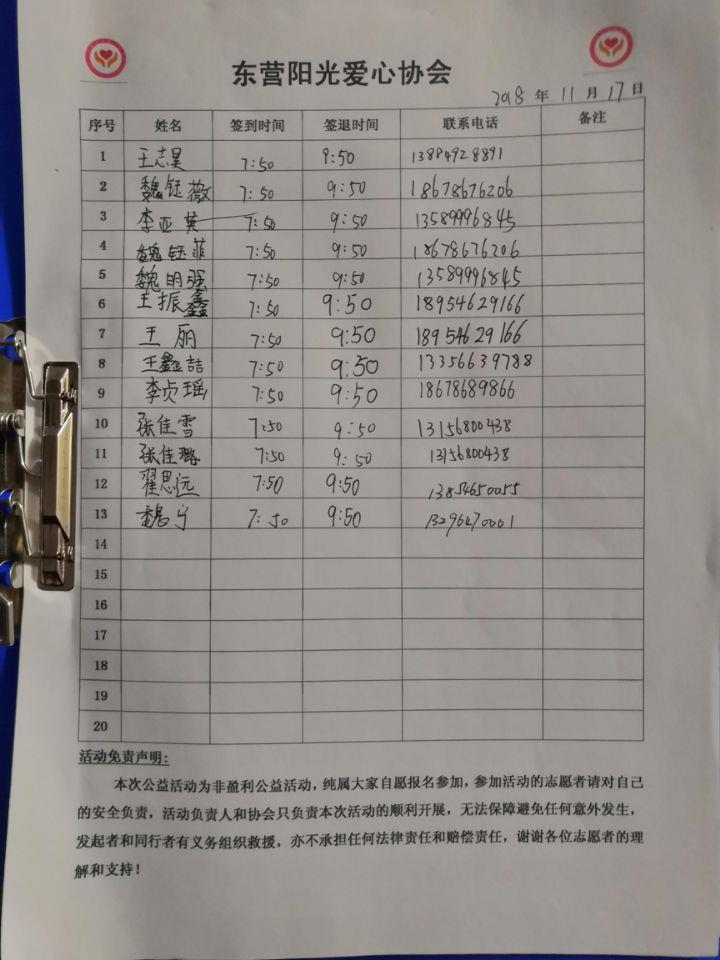 东营阳光爱心协会
2018 年 11 月 17 日
序号 姓名 签到时间 签退时间 联系电话 备注
1 王志昊 7:50 9:50 13884928891
2 魏钰薇 7:50 9:50 18678676206
3 李亚英 7:50 9:50 13589996845
4 魏钰菲 7:50 9:50 18678676206
5 魏明强 7:50 9:50 13589996845
6 王振鑫 7:50 9:50 18954629166
7 王丽 7:50 9:50 18954629166
8 王鑫喆 7:50 9:50 13356639788
9 李贞瑶 7:50 9:50 18678689866
10 张佳雪 7:50 9:50 13156800438
11 张佳璐 7:50 9:50 13156800438
12 翟思远 7:50 9:50 13854650055
13 魏宁 7:50 9:50 13296470001
14
15
16
17
18
19
20
活动免责声明:
本次公益活动为非盈利公益活动，纯属大家自愿报名参加，参加活动的志愿者请对自己
的安全负责，活动负责人和协会只负责本次活动的顺利开展，无法保障避免任何意外发生，
发起者和同行者有义务组织救援，亦不承担任何法律责任和赔偿责任，谢谢各位志愿者的理
解和支持！